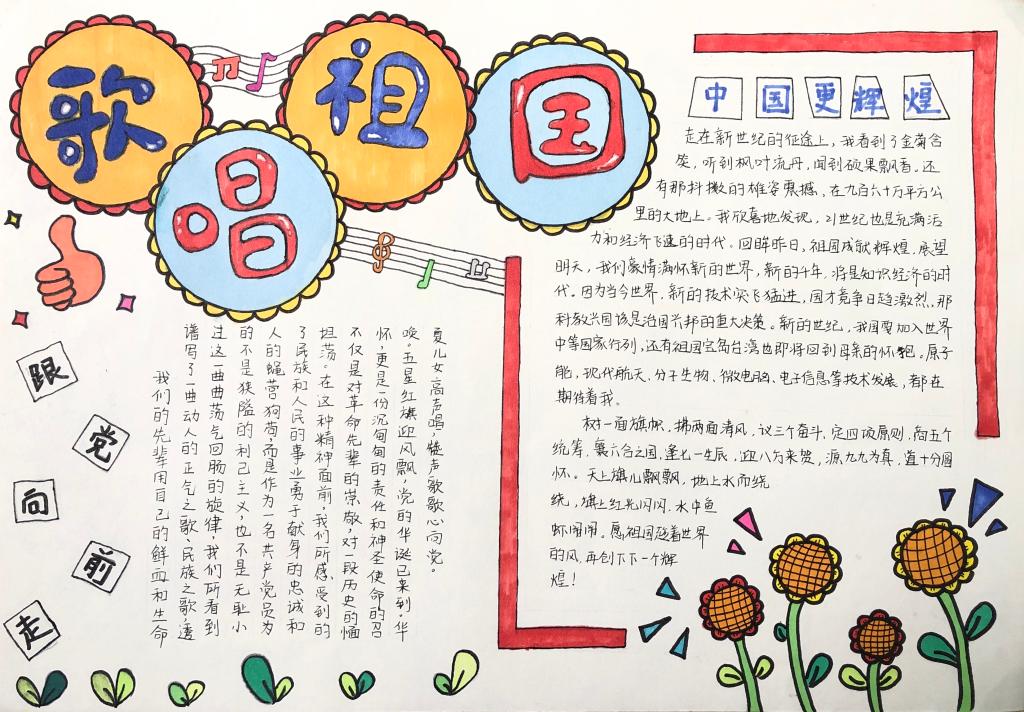 歌唱祖国
跟党向前走
我们的先辈用自己的鲜血和生命
谱写了一曲动人的正气之歌、民族之歌,透
过这一曲曲荡气回肠的旋律,我们所看到
的不是狭隘的利己主义,也不是无耻小
人的蝇营狗苟,而是作为一名共产党员为
了民族和人民的事业勇于献身的忠诚和
坦荡。在这种精神面前,我们所感受到的
不仅是对革命先辈的崇敬,对一段历史的缅
怀,更是一份沉甸甸的责任和神圣使命的召
唤。五星红旗迎风飘,党的华诞已来到。华
夏儿女高声唱,声歌歌心向党。
中国更辉煌
走在新世纪的征途上,我看到了金菊含
笑,听到枫叶流丹,闻到硕果飘香。还
有那抖擞的雄姿震撼,在九百六十万平方公
里的大地上。我欣喜地发现,21世纪也是充满活
力和经济飞速的时代。回眸昨日,祖国成就辉煌,展望
明天,我们豪情满怀新的世界,新的千年,将是知识经济的时
代。因为当今世界,新的技术突飞猛进,国才竞争日趋激烈,那
科教兴国该是治国兴邦的重大决策。新的世纪,我国要加入世界
中等国家行列,还有祖国宝岛台湾也即将回到母亲的怀抱。原子
能,现代航天、分子生物、微电脑、电子信息等技术发展,都在
期待着我。
树一面旗帜,拂两面清风,议三个奋斗、定四项原则,商五个
统筹、襄六合之国,逢七一生辰,迎八方来贺,源九九为真,直十分圆
怀。天上旗儿飘飘飘,地上水而绕
绕,旗上红光闪闪,水中鱼
虾闹闹。愿祖国趁着世界
的风,再创下下一个辉
煌!